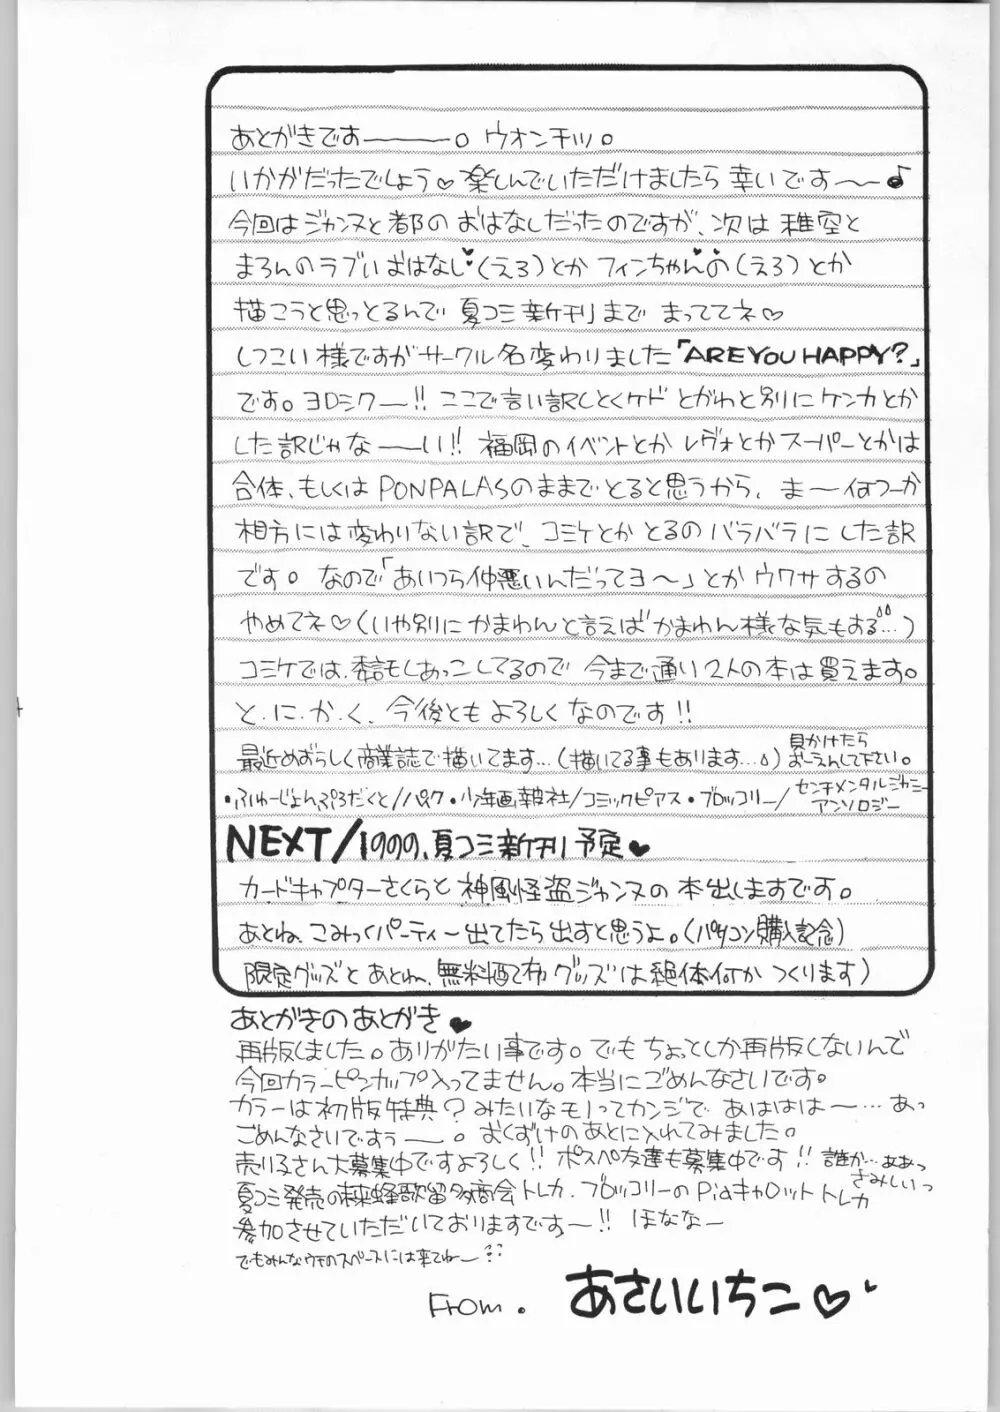 あとがきです———。ウオンチッ。
いかがだったでしょう♡楽しんでいただけましたら幸いです〜〜♪
今回はジャンヌと都のおはなしだったのですが、次は稚空と
まろんのラブいおはなし♥(えろ)とかフィンちゃんの(えろ)とか
描こうと思っとるんで夏コミ新刊まで まっててネ♡
しつこい様ですがサークル名変わりました「ARE YOU HAPPY?」
です。ヨロシクー!! ここで言い訳しとくケド とがわと別にケンカとか
した訳じゃなーーい!! 福岡のイベントとか レヴォとかスーパーとかは
合体、もしくはPONPALASのままでとると思うから、ま〜何つーか
相方には変わりない訳で、コミケとか とるのバラバラにした訳
です。なので「あいつら仲悪いんだってヨ〜」とか ウワサするの
やめてネ♡(いや別にかまわんと言えばかまわん様な気もする…)
コミケでは、委託もしあっこしてるので 今まで通り2人の本は買えます。
と.に.か.く、今後ともよろしくなのです!!
最近めずらしく商業誌で描いてます…(描いてる事もあります…)見かけたら
おーえんして下さい。
・ふゅーじょんぷろだくと/パスク・少年画報社/コミックピアス・ブロッコリー/センチメンタルジャニー
アンソロジー
NEXT/1999、夏コミ新刊予定♥
カードキャプターさくらと神風怪盗ジャンヌの本出しますです。
あとね、こみっくパーティー出てたら出すと思うよ。(パソコン購入記念)
限定グッズと あとね、無料配布グッズは絶体何か つくります)
あとがきのあとがき♥
再版しました。ありがたい事です。でもちょっとしか再版しないんで
今回カラーピンナップ入ってません。本当にごめんなさいです。
カラーは初版特典?みたいなモノってカンジで あははは〜…あっ
ごめんなさいですぅー。おくづけのあとに入れてみました。
売り子さん大募集中ですよろしく!! ポスペ友達も募集中です!! 誰か…ああっ
さみしいっ
夏コミ発売の 歌留多商会トレカ、ブロッコリーのPiaキャロットトレカ
参加させていただいておりますです〜!! ほななー
でもみんなウチのスペースには来てねー
From. あさいいちこ♡